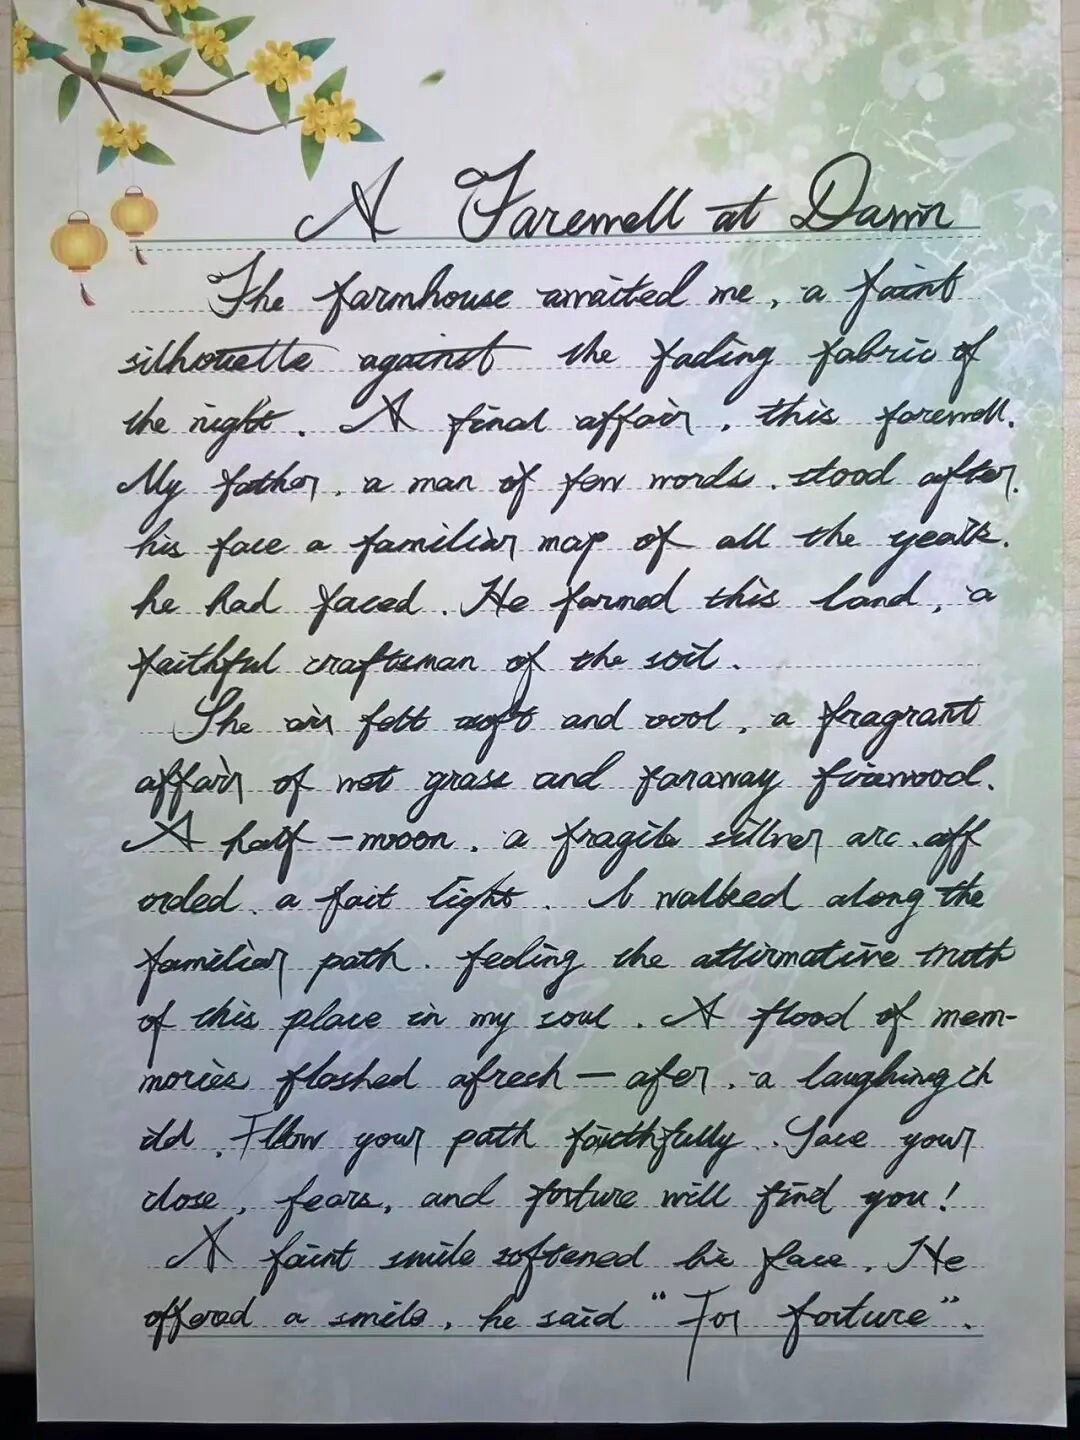 A Farewell at Dawn
The farmhouse awaited me, a faint
silhouette against the fading fabric of
the night. A final affair, this farewell.
My father, a man of few words, stood after,
his face a familiar map of all the years.
he had faced. He farmed this land, a
faithful craftsman of the soil.
The air felt soft and cool, a fragrant
affair of wet grass and faraway firewood.
A half-moon, a fragile silver arc, aff
orded a fait light. I walked along the
familiar path, feeling the affirmative truth
of this place in my soul. A flood of mem-
mories flashed afresh — afer, a laughing ch
ild. Fllow your path faithfully. Face your
close, fears, and forture will find you!
A faint smile softened his face. He
offered a smile, he said "For forture".